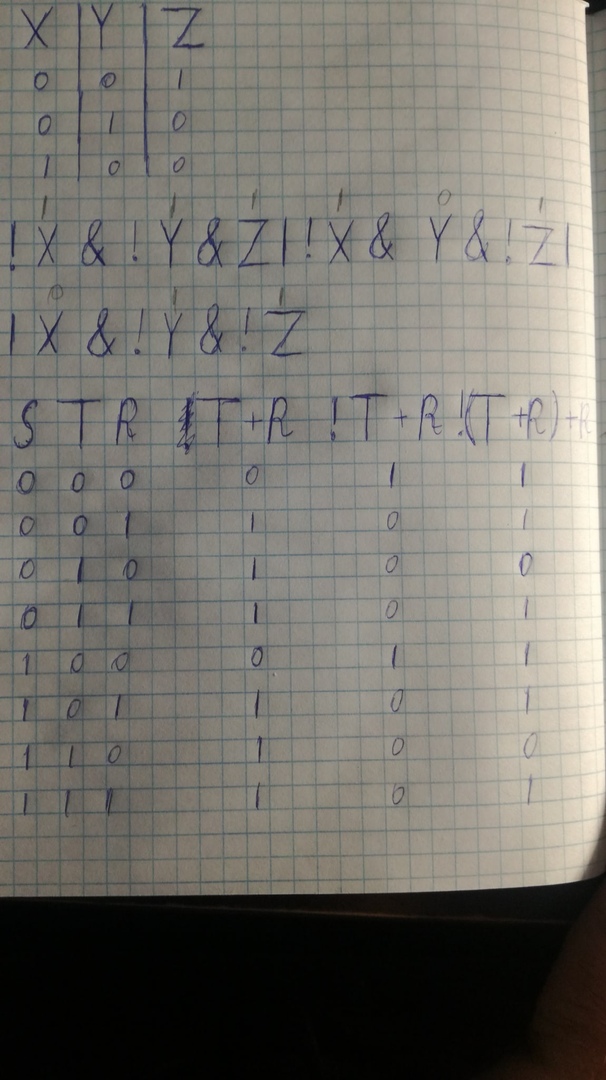 X | Y | Z
0 0 1
0 1 0
1 0 0
1 1 1 1 0 1
!X & !Y & Z | !X & Y & !Z |
0 1 1
| X & !Y & !Z
S T R T+R !T+R !(T+R)+R
0 0 0 0 1 1
0 0 1 1 0 1
0 1 0 1 0 0
0 1 1 1 0 1
1 0 0 0 1 1
1 0 1 1 0 1
1 1 0 1 0 0
1 1 1 1 0 1